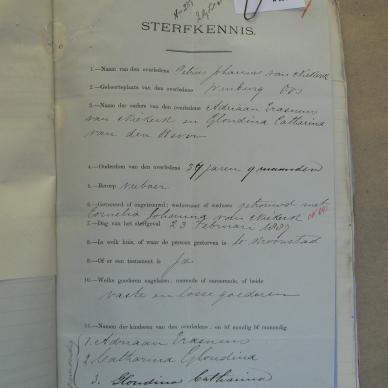 STERFKENNIS.
1.—Naam van den overledene Petrus Johannes van Niekerk
2.—Geboorteplaats van den overledene Winburg OVS
3.—Namen der ouders van den overledene Adriaan Erasmus
van Niekerk en Glondina Catharina
van den
4.—Ouderdom van den overledene 34 jaren 9 maanden
5.—Beroep veeboer
6.—Getrouwd of ongetrouwd; weduwnaar of weduwe getrouwd met
Cornelia Johanna van Niekerk
7.—Dag van het sterfgeval 23 Februari
8.—In welk huis, of waar de persoon gestorven is te Kroonstad
9.—Of er een testament is ja
10.—Welke goederen nagelaten; roerende of onroerende, of beide
vaste en losse goederen
11.—Namen der kinderen van den overledene; en of mondig of onmondig
1. Adriaan Erasmus
2. Catharina Glondina
3. Glondina Catharina